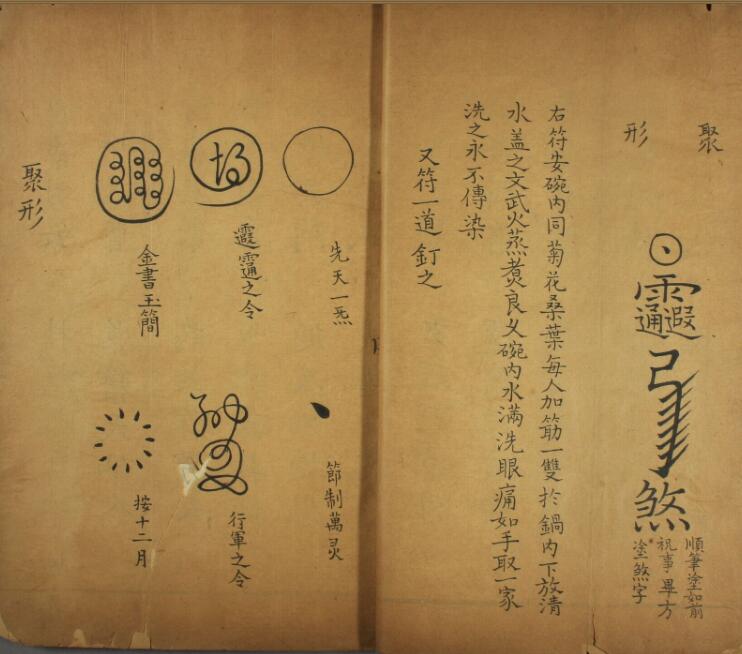 聚
形
煞
順筆塗如前
祝事畢方
塗煞字
右符安碗内同菊花桑葉每人加筯一雙於鍋内下放清
水盖之文武火蒸煑良久碗内水滿洗眼痛如手取一家
洗之永不傳染
又符一道釘之
先天一炁
節制萬灵
之令
行軍之令
金書玉簡
按十二月
聚形